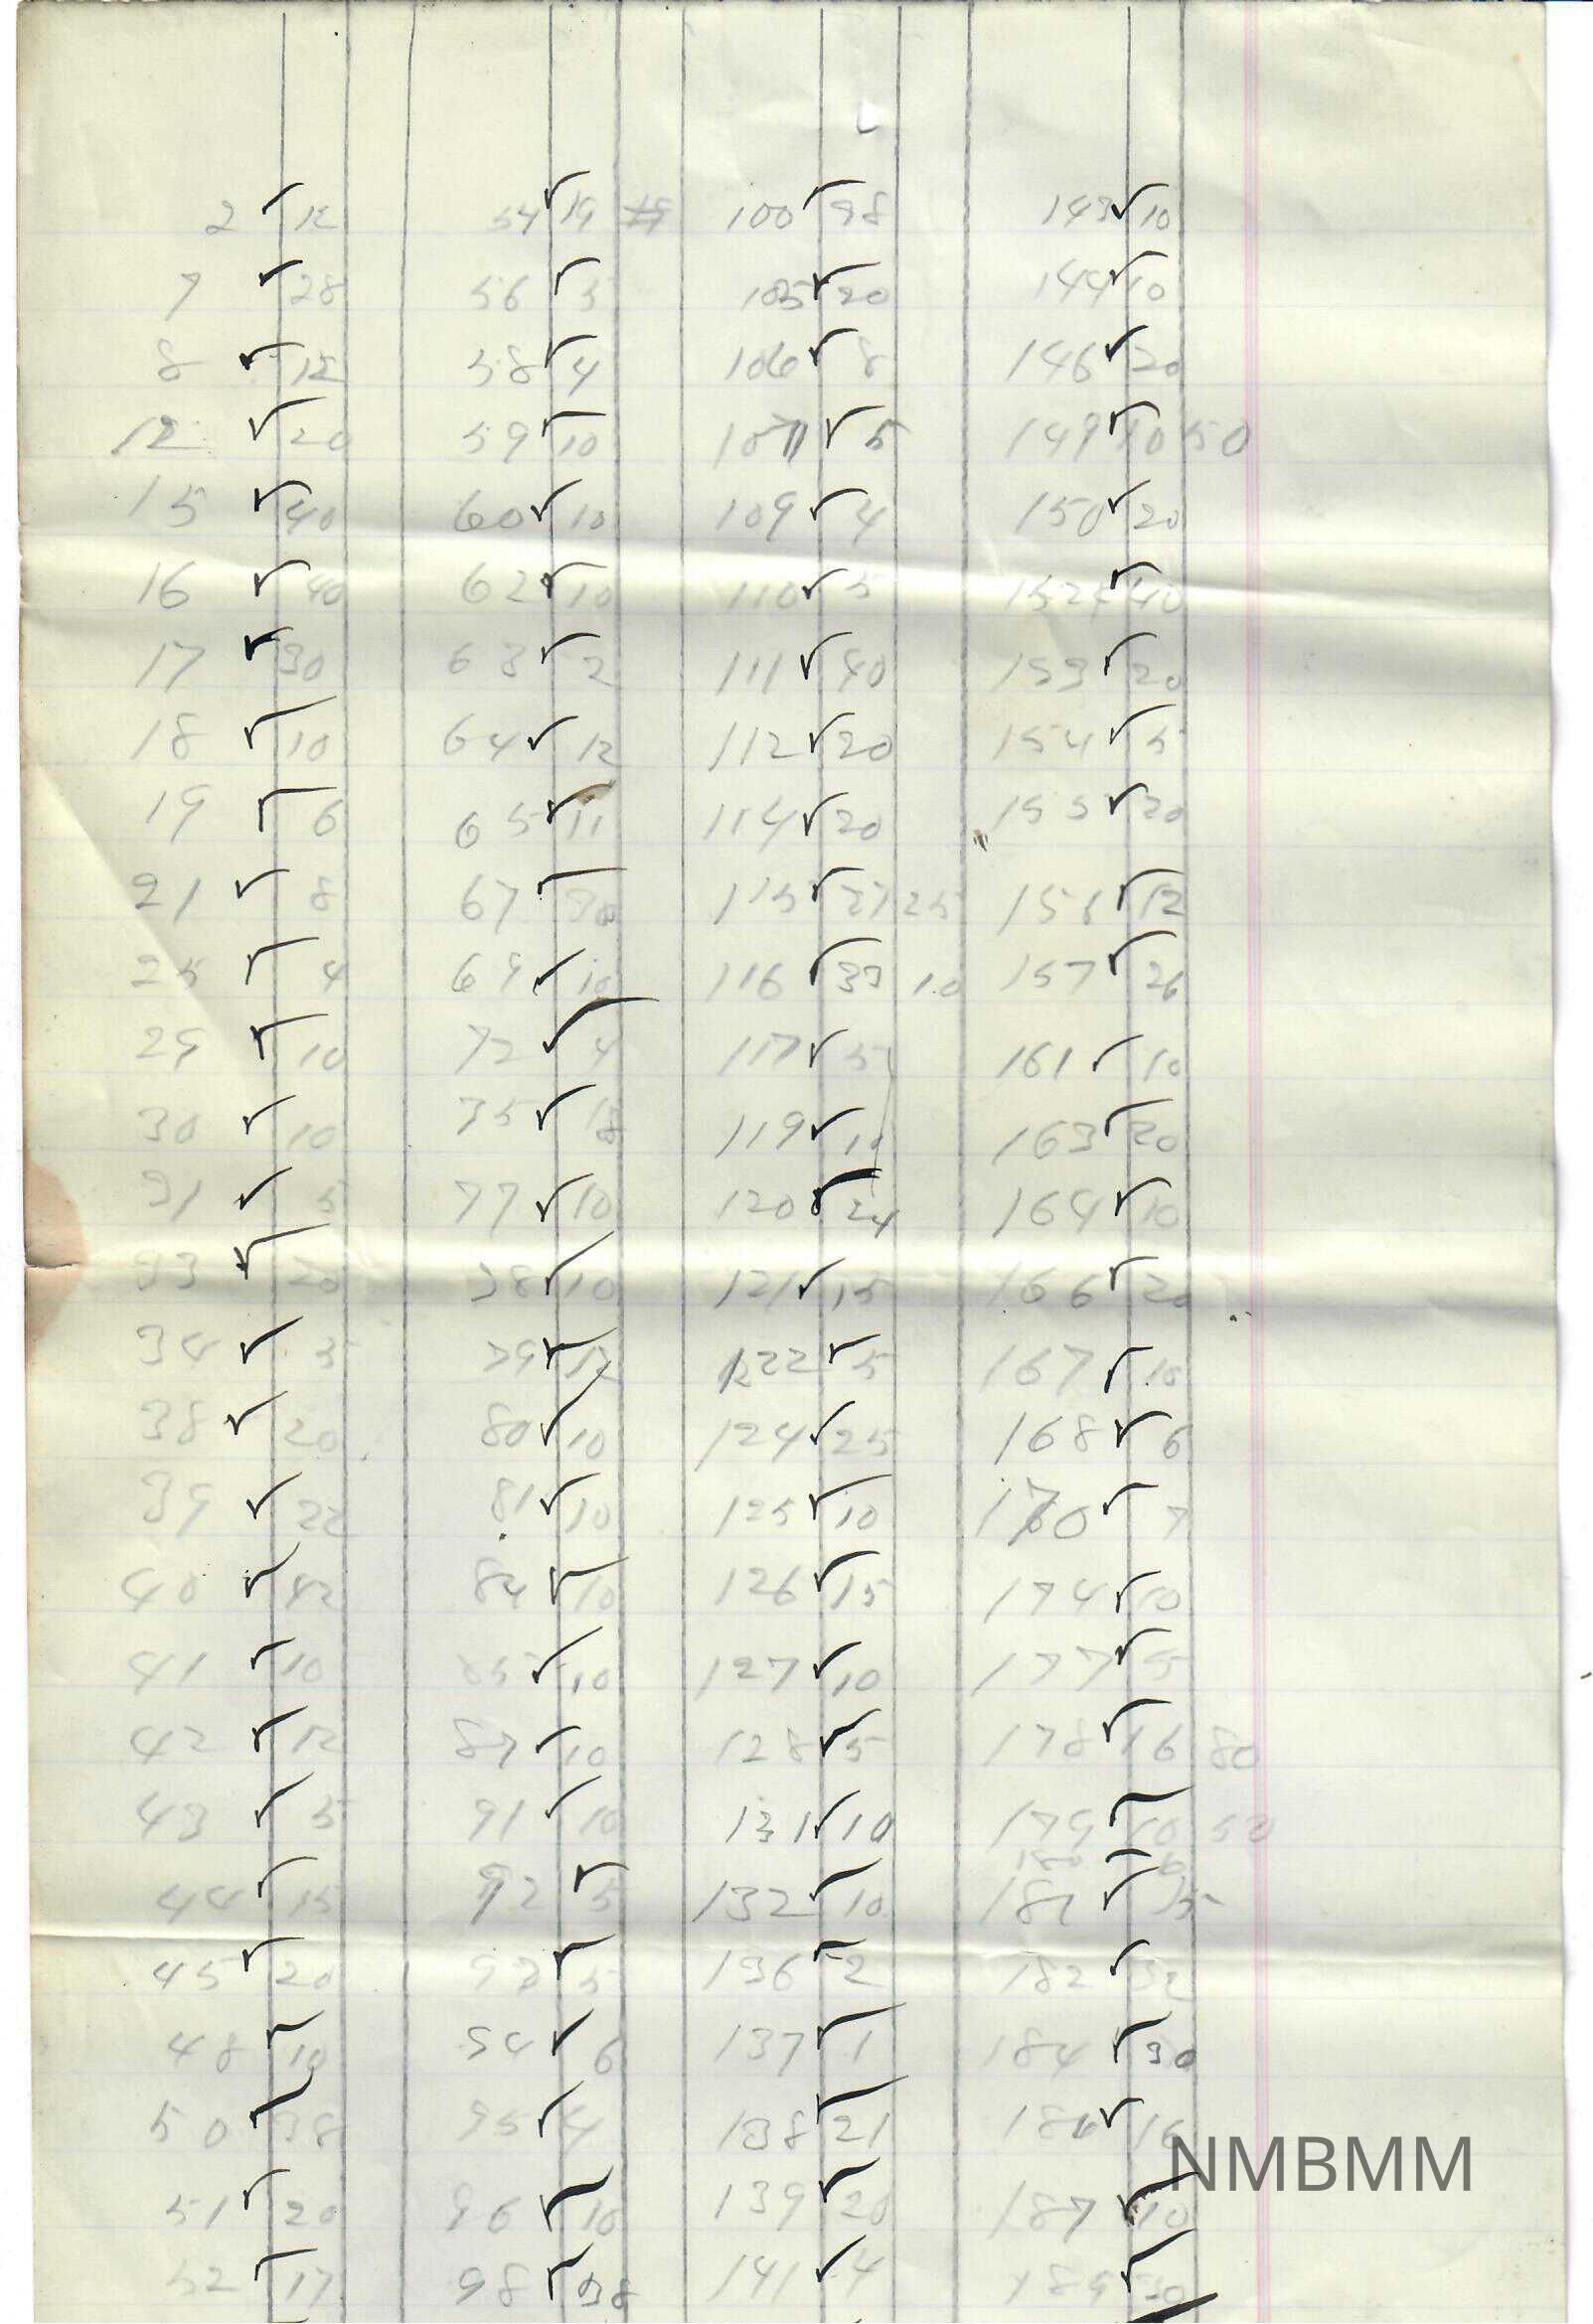 2 ✓ 12 54 ✓ 19 100 ✓ 98 143 ✓ 10
7 ✓ 28 56 ✓ 5 105 ✓ 20 144 ✓ 10
8 ✓ 12 58 ✓ 4 106 ✓ 8 146 ✓ 20
12 ✓ 20 59 ✓ 10 107 ✓ 5 149 ✓ 10 50
15 ✓ 40 60 ✓ 10 109 ✓ 4 150 ✓ 20
16 ✓ 40 62 ✓ 10 110 ✓ 5 152 ✓ 40
17 ✓ 30 63 ✓ 2 111 ✓ 40 153 ✓ 20
18 ✓ 10 64 ✓ 12 112 ✓ 20 154 ✓ 5
19 ✓ 6 65 ✓ 11 114 ✓ 20 155 ✓ 20
21 ✓ 8 67 ✓ 115 ✓ 27 25 156 ✓ 12
25 ✓ 4 69 ✓ 10 116 ✓ 33 10 157 ✓ 26
29 ✓ 10 72 ✓ 4 117 ✓ 161 ✓ 10
30 ✓ 10 75 ✓ 18 119 ✓ 10 163 ✓ 20
31 ✓ 5 77 ✓ 10 120 ✓ 24 164 ✓ 10
33 ✓ 20 78 ✓ 10 121 ✓ 15 166 ✓ 20
34 ✓ 5 79 ✓ 12 122 ✓ 5 167 ✓ 10
38 ✓ 20 80 ✓ 10 124 ✓ 25 168 ✓ 6
39 ✓ 22 81 ✓ 10 125 ✓ 10 170 ✓ 7
40 ✓ 42 84 ✓ 10 126 ✓ 15 174 ✓ 10
41 ✓ 10 85 ✓ 10 127 ✓ 10 177 ✓ 5
42 ✓ 12 87 ✓ 10 128 ✓ 5 178 ✓ 16 80
43 ✓ 5 91 ✓ 10 131 ✓ 10 179 ✓ 10 50
180 ✓ 6
44 ✓ 15 92 ✓ 5 132 ✓ 10 181 ✓ 15
45 ✓ 20 93 ✓ 5 136 ✓ 2 182 ✓ 32
48 ✓ 10 94 ✓ 6 137 ✓ 1 184 ✓ 30
50 ✓ 38 95 ✓ 4 138 ✓ 21 186 ✓ 16
NMBMM
51 ✓ 20 96 ✓ 10 139 ✓ 20 187 ✓ 10
52 ✓ 17 98 ✓ 38 141 ✓ 4 189 ✓